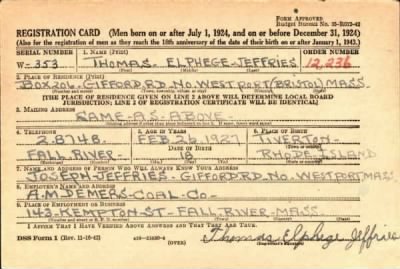 FORM APPROVED
Budget Bureau No. 33-R012-42
REGISTRATION CARD (Men born on or after July 1, 1924, and on or before December 31, 1924)
(Also for the registration of men as they reach the 18th anniversary of the date of their birth on or after January 1, 1943.)
SERIAL NUMBER 1. NAME (Print) ORDER NUMBER
W-353 THOMAS ELPHEGE-JEFFRIES 12,236
2. PLACE OF RESIDENCE (Print)
BOX204-GIFFORD.RD.NO.WESTPORT(BRISTOL)MASS.
[THE PLACE OF RESIDENCE GIVEN ON LINE 2 ABOVE WILL DETERMINE LOCAL BOARD
JURISDICTION; LINE 2 OF REGISTRATION CERTIFICATE WILL BE IDENTICAL]
3. MAILING ADDRESS
SAME-AS-ABOVE-
4. TELEPHONE 5. AGE IN YEARS 6. PLACE OF BIRTH
2-8748- FEB 26 1927 TIVERTON-
DATE OF BIRTH
FALL RIVER 18 RHODE-ISLAND
7. NAME AND ADDRESS OF PERSON WHO WILL ALWAYS KNOW YOUR ADDRESS
JOSEPH-JEFFRIES- GIFFORD.RD-NO.WESTPORT MASS
8. EMPLOYER'S NAME AND ADDRESS
A.M.DEMERS-COAL-CO-
9. PLACE OF EMPLOYMENT OR BUSINESS
143-KEMPTON-ST-FALL-RIVER-MASS-
I AFFIRM THAT I HAVE VERIFIED ABOVE ANSWERS AND THAT THEY ARE TRUE.
DSS Form 1 (Rev. 11-16-42) (OVER) Thomas Elphege Jeffries